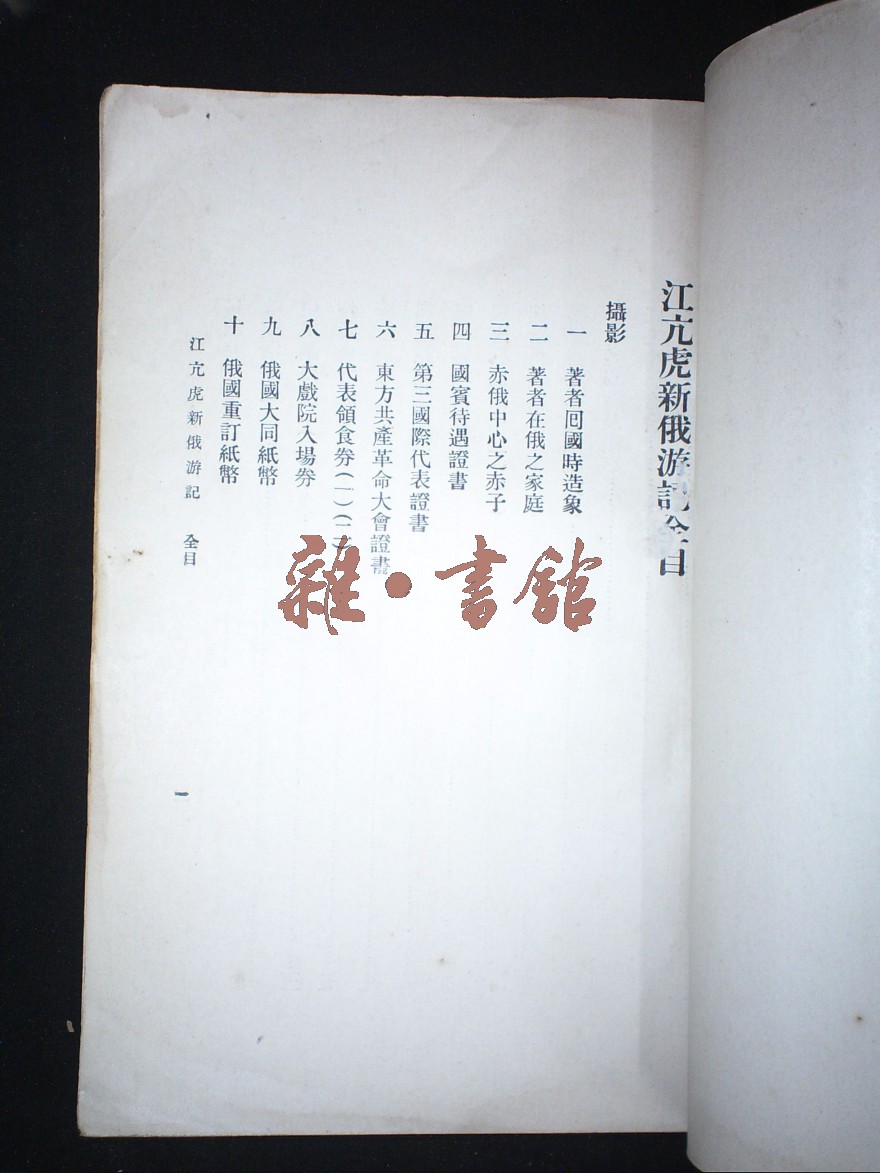 江亢虎新俄游記全目
攝影
一 著者囘國時造象
二 著者在俄之家庭
三 赤俄中心之赤子
四 國賓待遇證書
五 第三國際代表證書
六 東方共產革命大會證書
七 代表領食券(一)(二)
八 大戲院入場券
九 俄國大同紙幣
十 俄國重訂紙幣
江亢虎新俄游記 全目
一
雜·書館